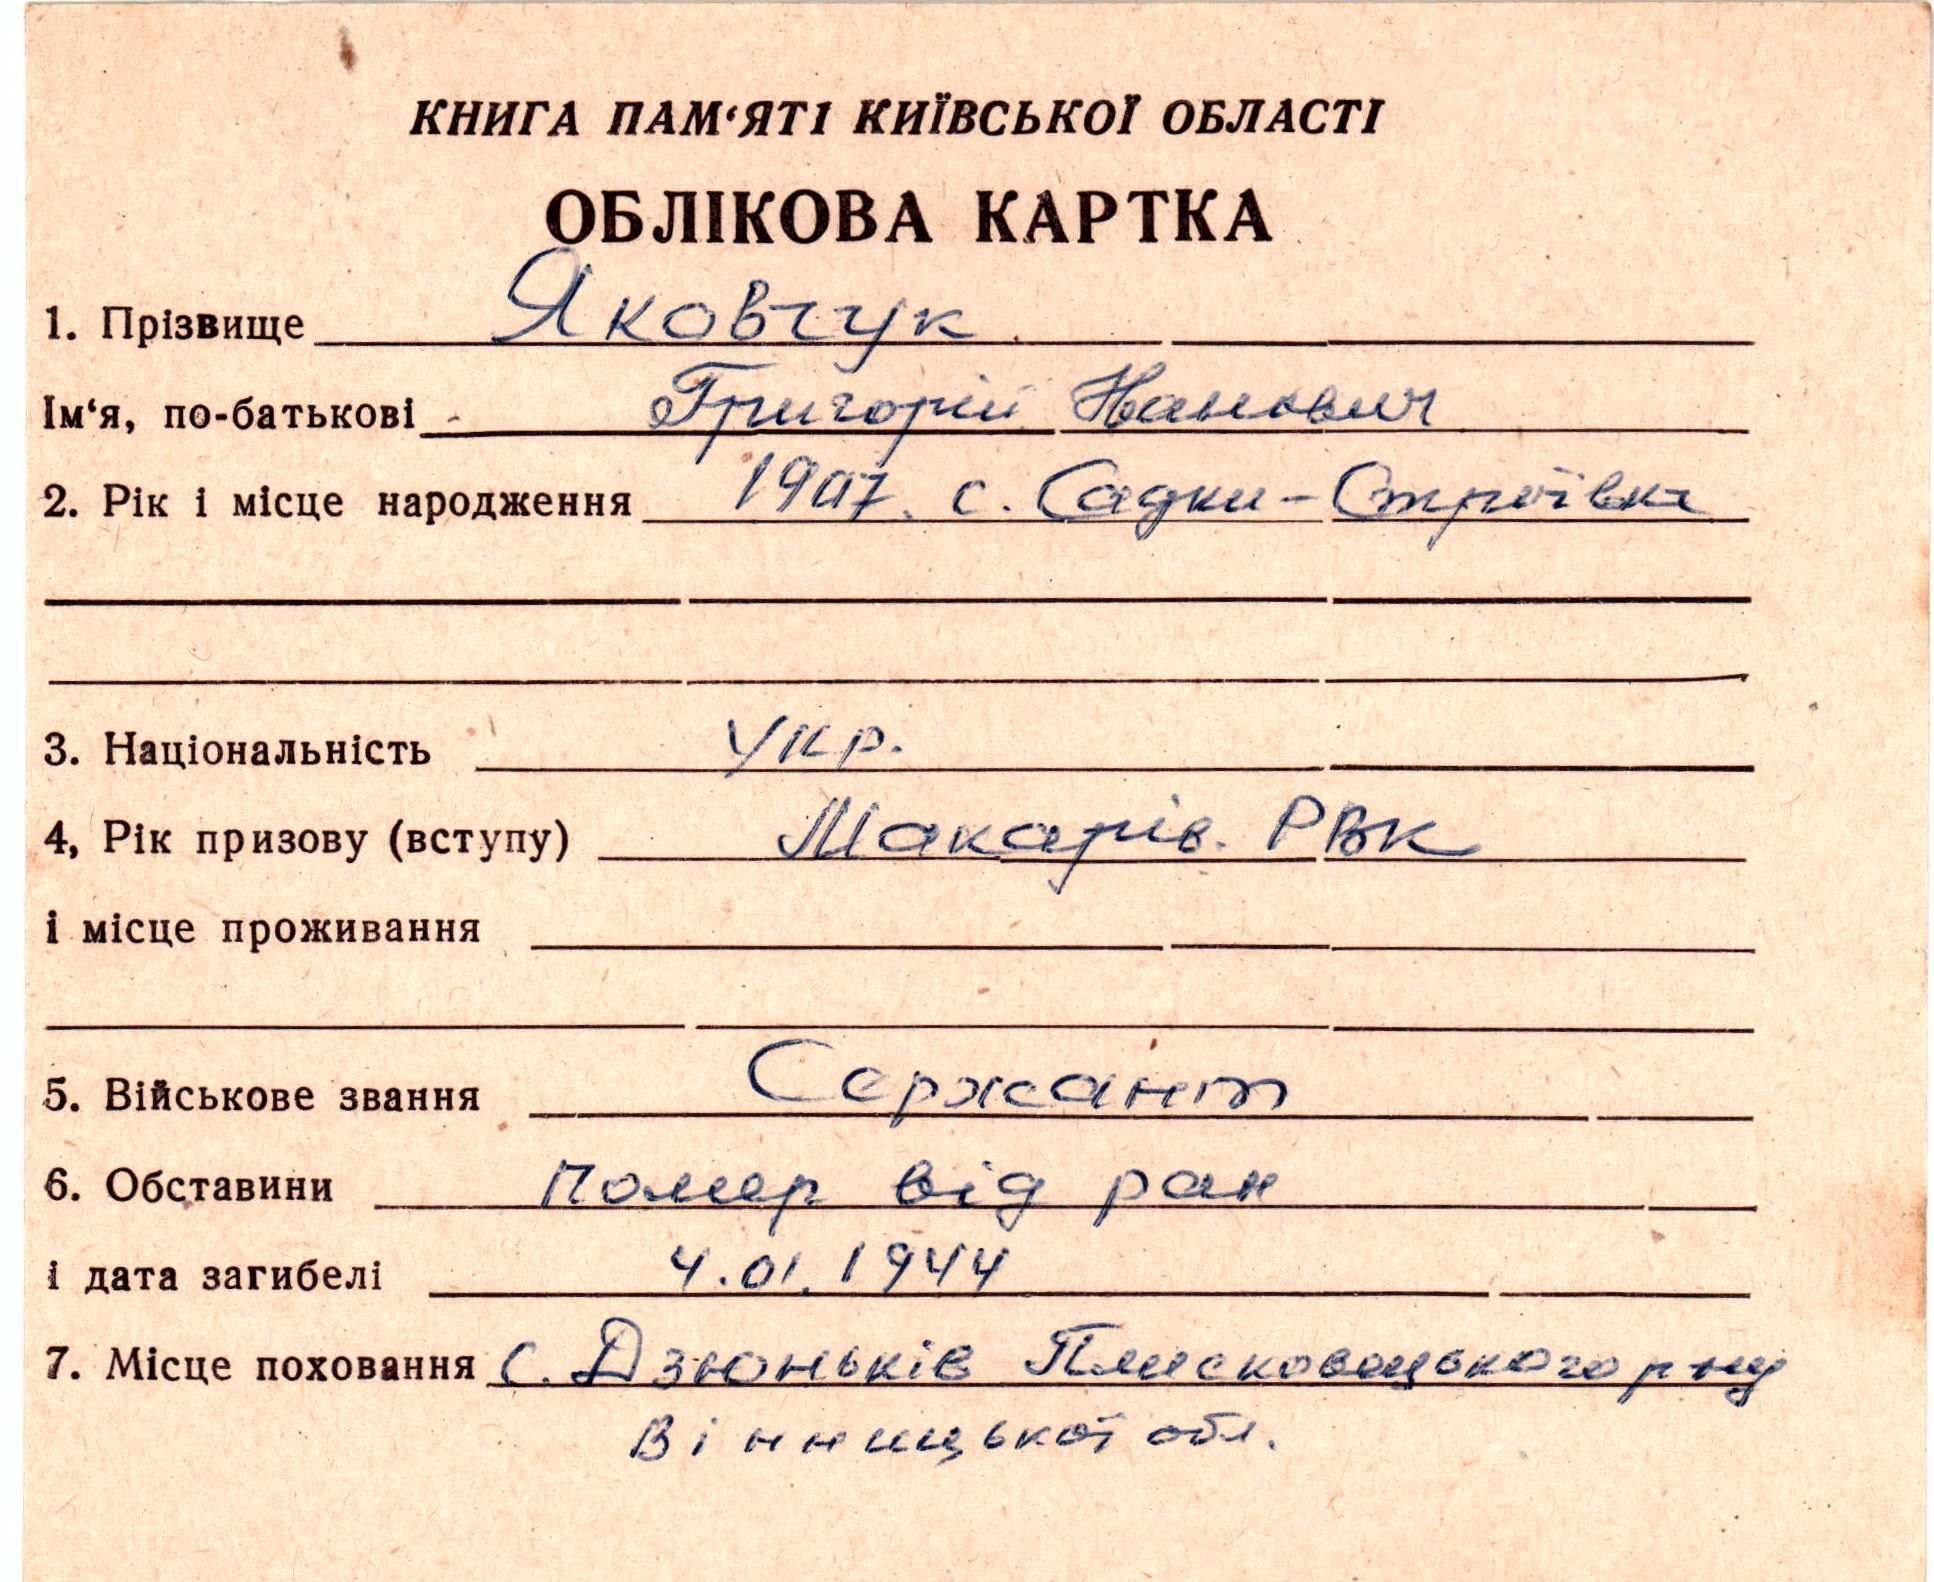 КНИГА ПАМ‘ЯТІ КИЇВСЬКОЇ ОБЛАСТІ
ОБЛІКОВА КАРТКА
1. Прізвище Яковчук
Ім‘я, по-батькові Григорій Іванович
2. Рік і місце народження 1907. с. Садки-Строївка
3. Національність укр.
4, Рік призову (вступу) Макарів. РВК
і місце проживання
5. Військове звання Сержант
6. Обставини помер від ран
і дата загибелі 4.01.1944
7. Місце поховання с. Дзюньків Плисковецького р-ну
Вінницької обл.